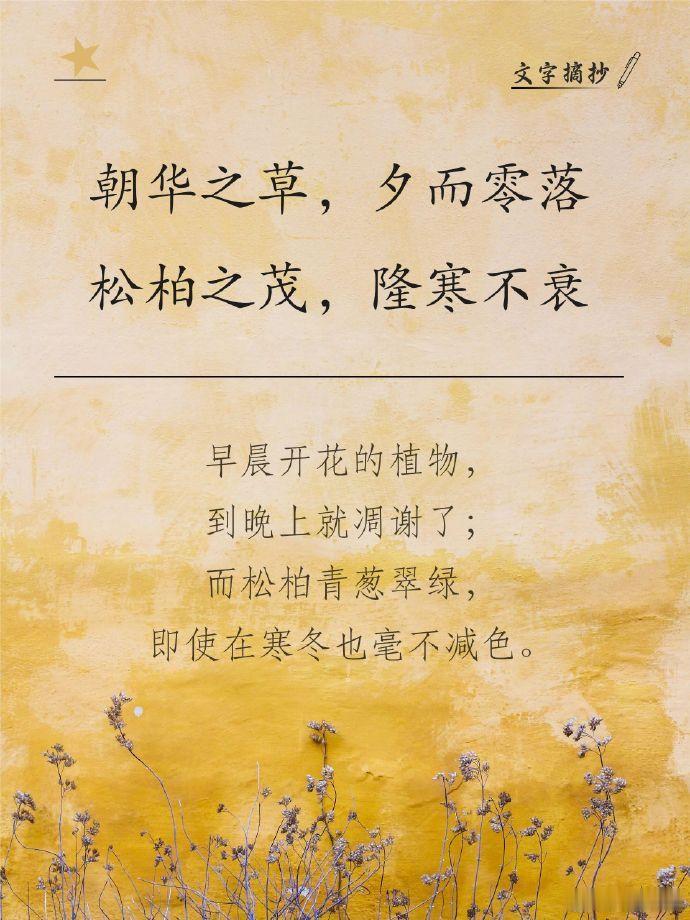 文字摘抄
朝华之草，夕而零落
松柏之茂，隆寒不衰
早晨开花的植物，
到晚上就凋谢了；
而松柏青葱翠绿，
即使在寒冬也毫不减色。